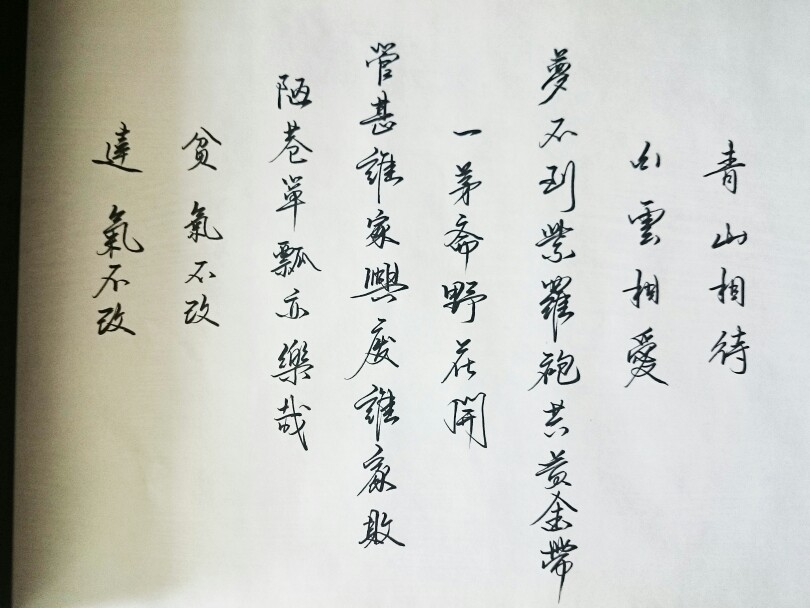 青山相待
白雲相愛
夢不到紫羅袍共黄金帶
一茅斋野花開
管甚誰家興废誰家敗
陋巷單瓢亦樂哉
贫氣不改
達氣不改